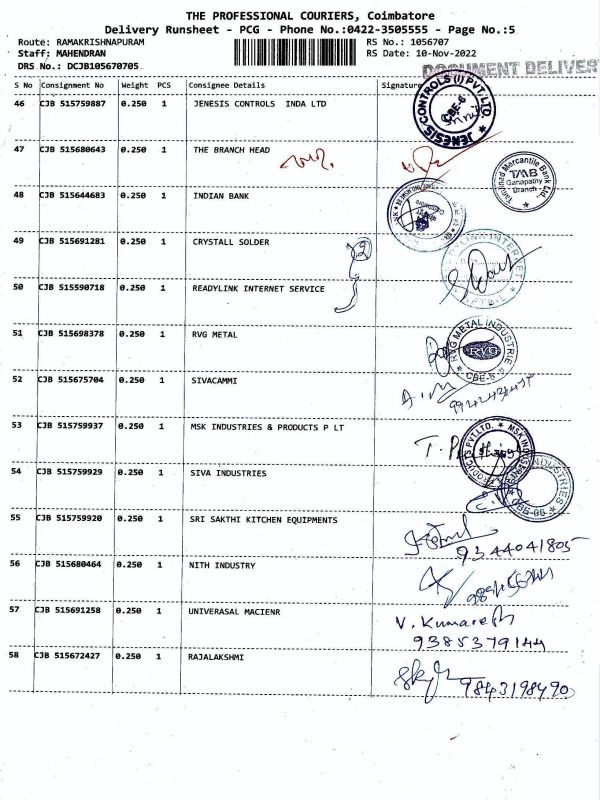 THE PROFESSIONAL COURIERS, Coimbatore
Delivery Runsheet - PCG - Phone No.:0422-3505555 - Page No.:5
Route: RAMAKRISHNAPURAM RS No.: 1056707
Staff: MAHENDRAN RS Date: 10-Nov-2022
DRS No.: DCJB105670705 DOCUMENT DELIVER
S No Consignment No Weight PCS Consignee Details Signature
46 CJB 515759887 0.250 1 JENESIS CONTROLS INDA LTD
JENESIS CONTROLS (I) PVT. LTD. CBE-6
47 CJB 515680643 0.250 1 THE BRANCH HEAD
Tamilnad Mercantile Bank Ltd. TMB Ganapathy Branch
48 CJB 515644683 0.250 1 INDIAN BANK
49 CJB 515691281 0.250 1 CRYSTALL SOLDER
2
50 CJB 515590718 0.250 1 READYLINK INTERNET SERVICE
51 CJB 515698378 0.250 1 RVG METAL
RVG METAL INDUSTRIE RVG CBE-6
52 CJB 515675704 0.250 1 SIVACAMMI
53 CJB 515759937 0.250 1 MSK INDUSTRIES & PRODUCTS P LT
54 CJB 515759929 0.250 1 SIVA INDUSTRIES
55 CJB 515759920 0.250 1 SRI SAKTHI KITCHEN EQUIPMENTS
9344041805
56 CJB 515680464 0.250 1 NITH INDUSTRY
57 CJB 515691258 0.250 1 UNIVERASAL MACIENR
V. Kumaresh
9385379144
58 CJB 515672427 0.250 1 RAJALAKSHMI
9843198490